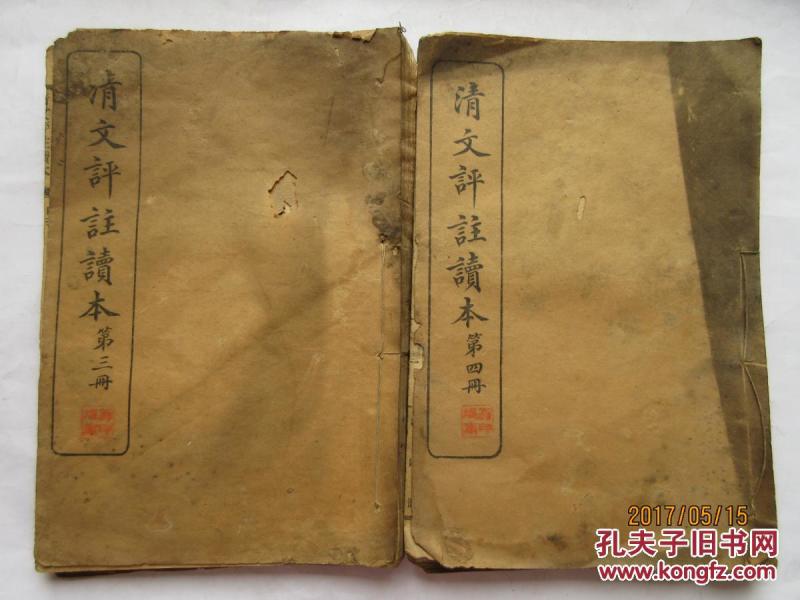 清文評註讀本 第三冊
清文評註讀本 第四冊
2017/05/15
孔夫子旧书网
www.kongfz.com